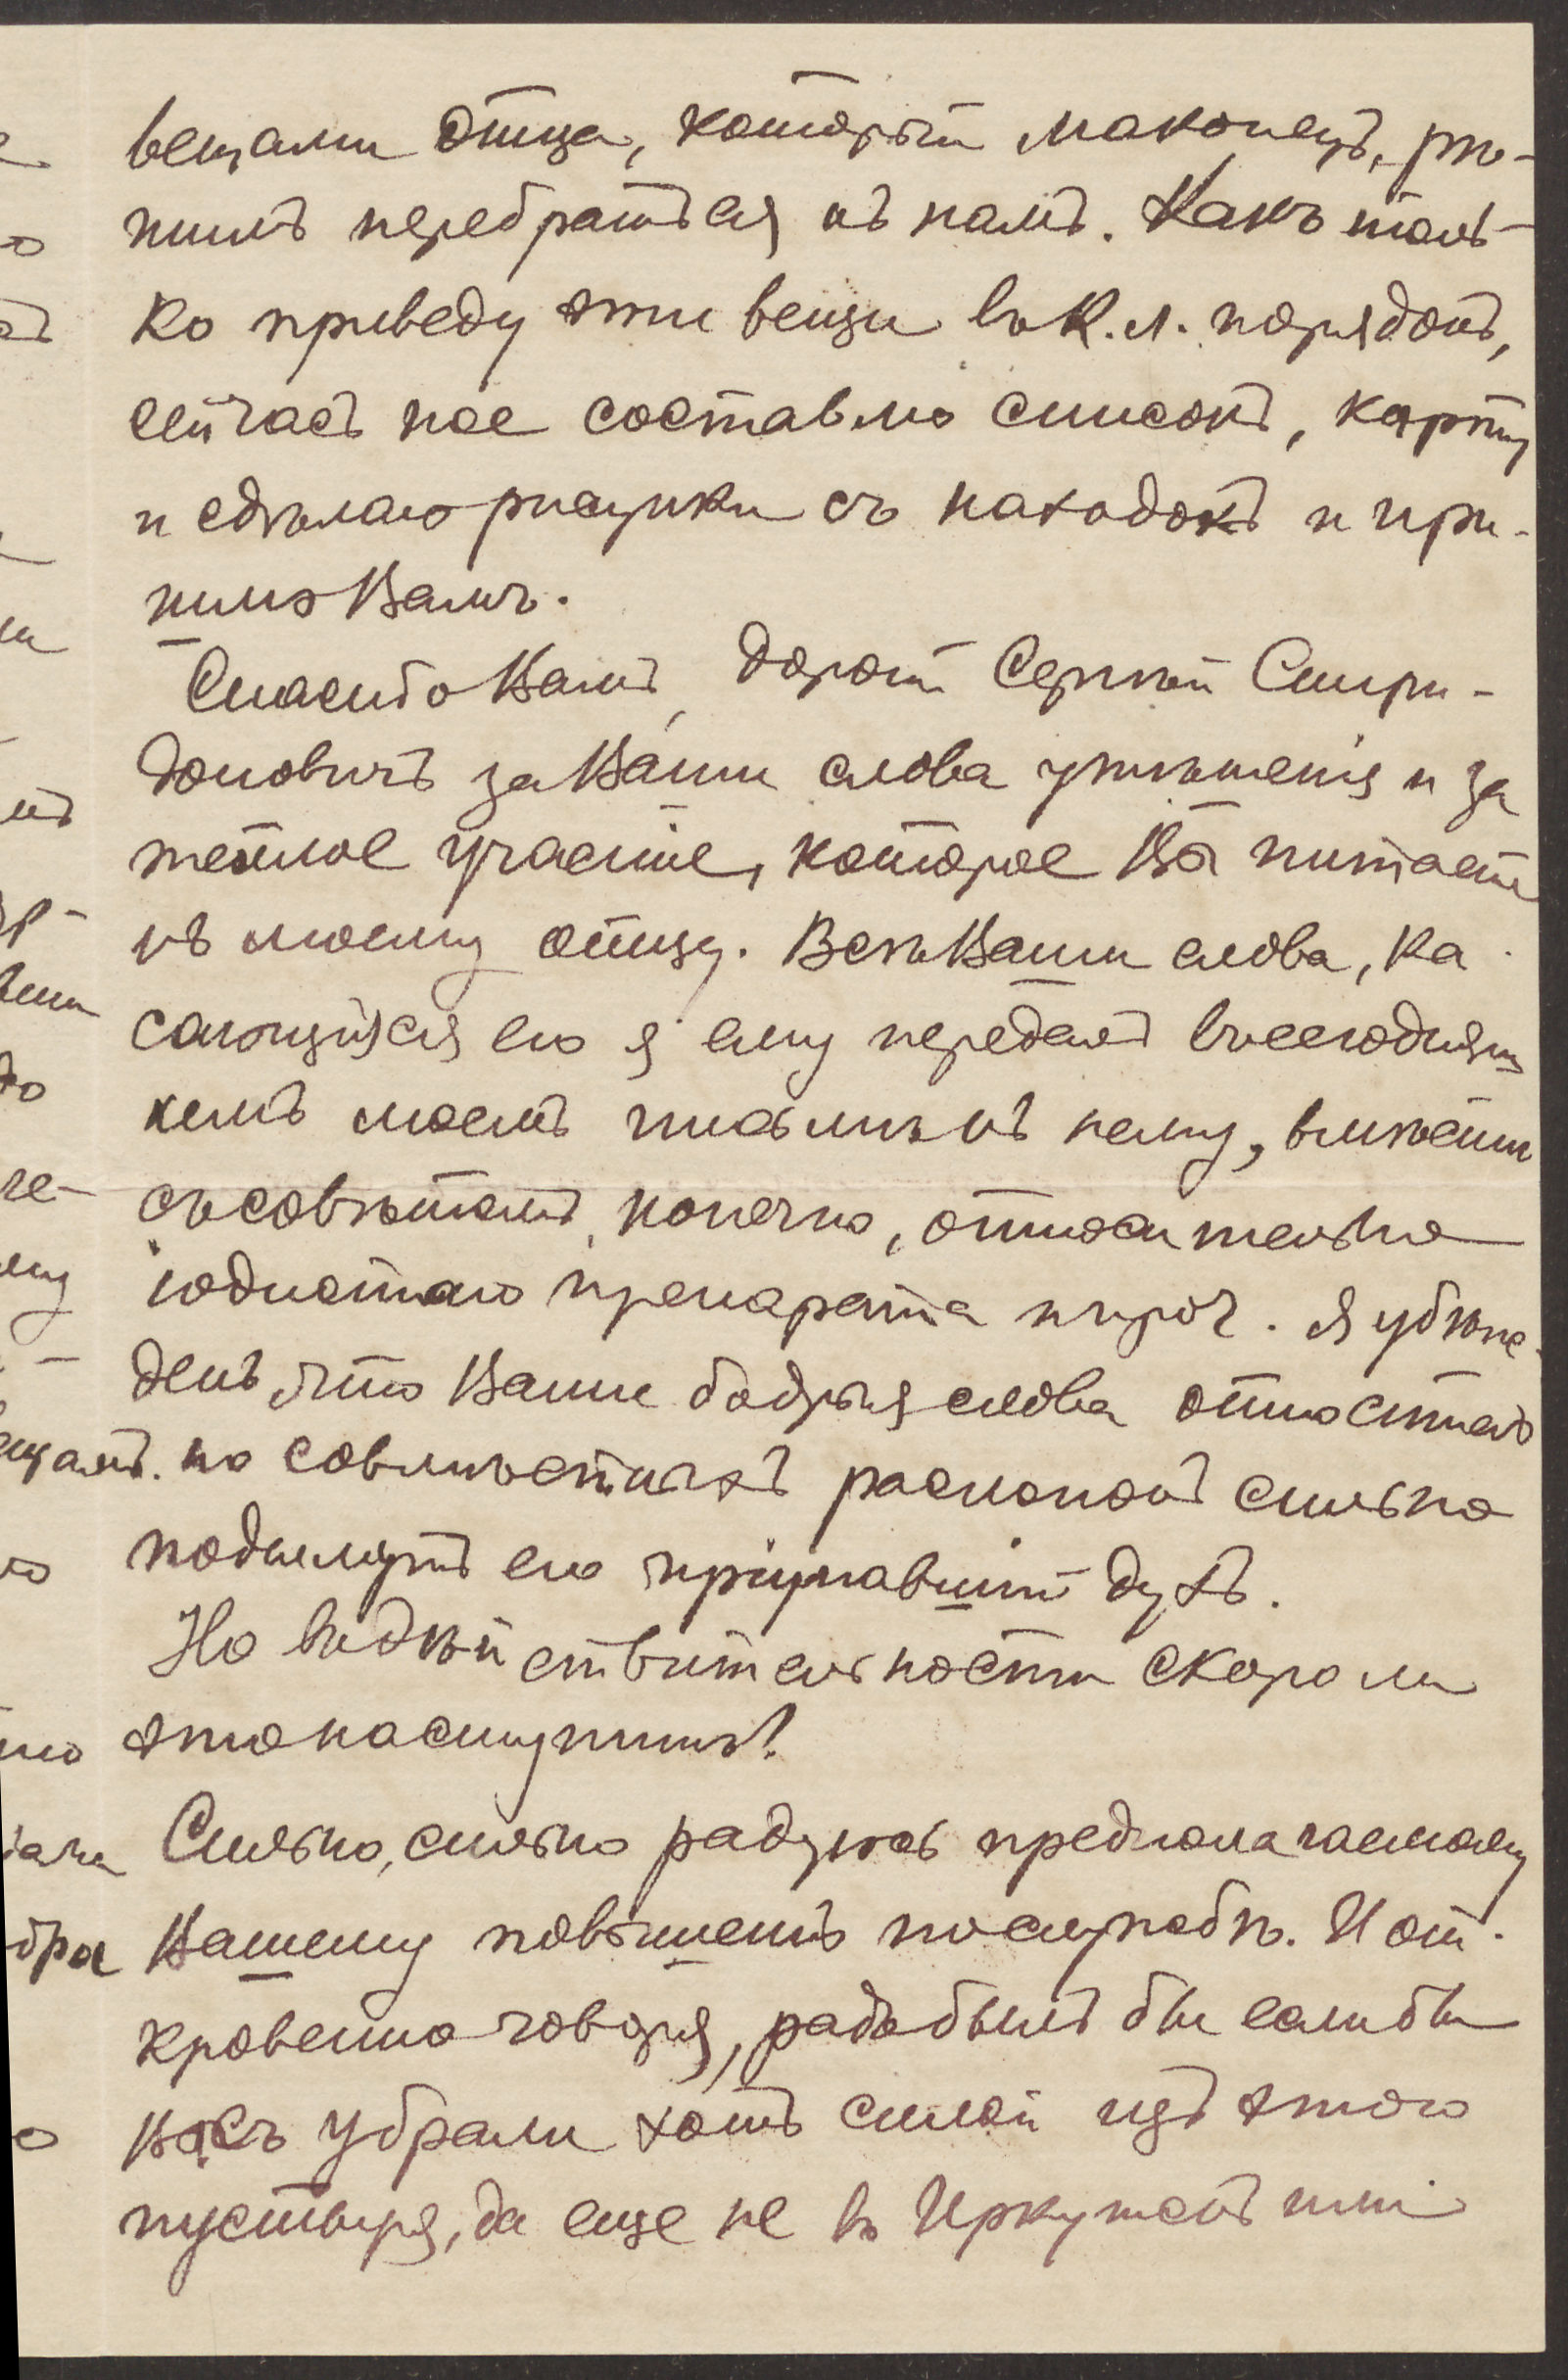 вещами отца, который наконецъ, рѣ-
шилъ перебраться къ намъ. Какъ толь-
ко приведу эти вещи въ к. л. порядокъ,
сейчасъ же составлю списокъ, карту
и сдѣлаю рисунки съ находокъ и при-
шлю Вамъ.
Спасибо Вамъ, дорогой Сергѣй Спири-
доновичъ за Ваши слова утѣшенія и за
теплое участіе, которое Вы питаете
къ моему отцу. Всѣ Ваши слова, ка-
сающіяся его я ему передалъ въ сегодняш
немъ моемъ письмѣ къ нему, вмѣстѣ
съ совѣтомъ, конечно, относительно
іодистаго препарата и проч. Я убѣж-
денъ, что Ваши бодрыя слова относитель
но совмѣстныхъ раскопокъ сильно
подымутъ его пріунывшій духъ.
Но въ дѣйствительности скоро ли
это наступитъ?
Сильно, сильно радуюсь предполагаемому
Вашему повышенію по службѣ. И от-
кровенно говоря, радъ былъ бы если бы
Васъ убрали хоть силой изъ этого
пустыря, да еще не въ Иркутскъ или